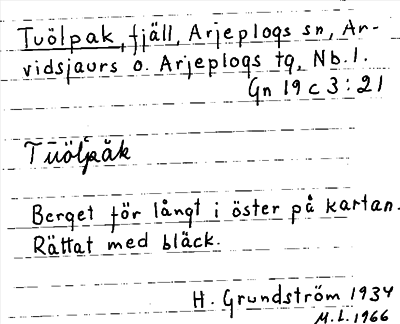 Tuölpak, fjäll, Arjeplogs sn, Ar-
vidsjaurs o. Arjeplogs tg, Nb. l.
Gn 19 c 3 : 21
Tuölpăk
Berget för långt i öster på kartan.
Rättat med bläck.
H. Grundström 1934
M.L. 1966